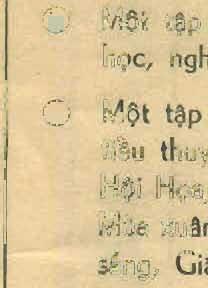 Một tập
học, ngh
Một tập
tiểu thuy
Hội Họa,
Mùa xuân
sống, Giả